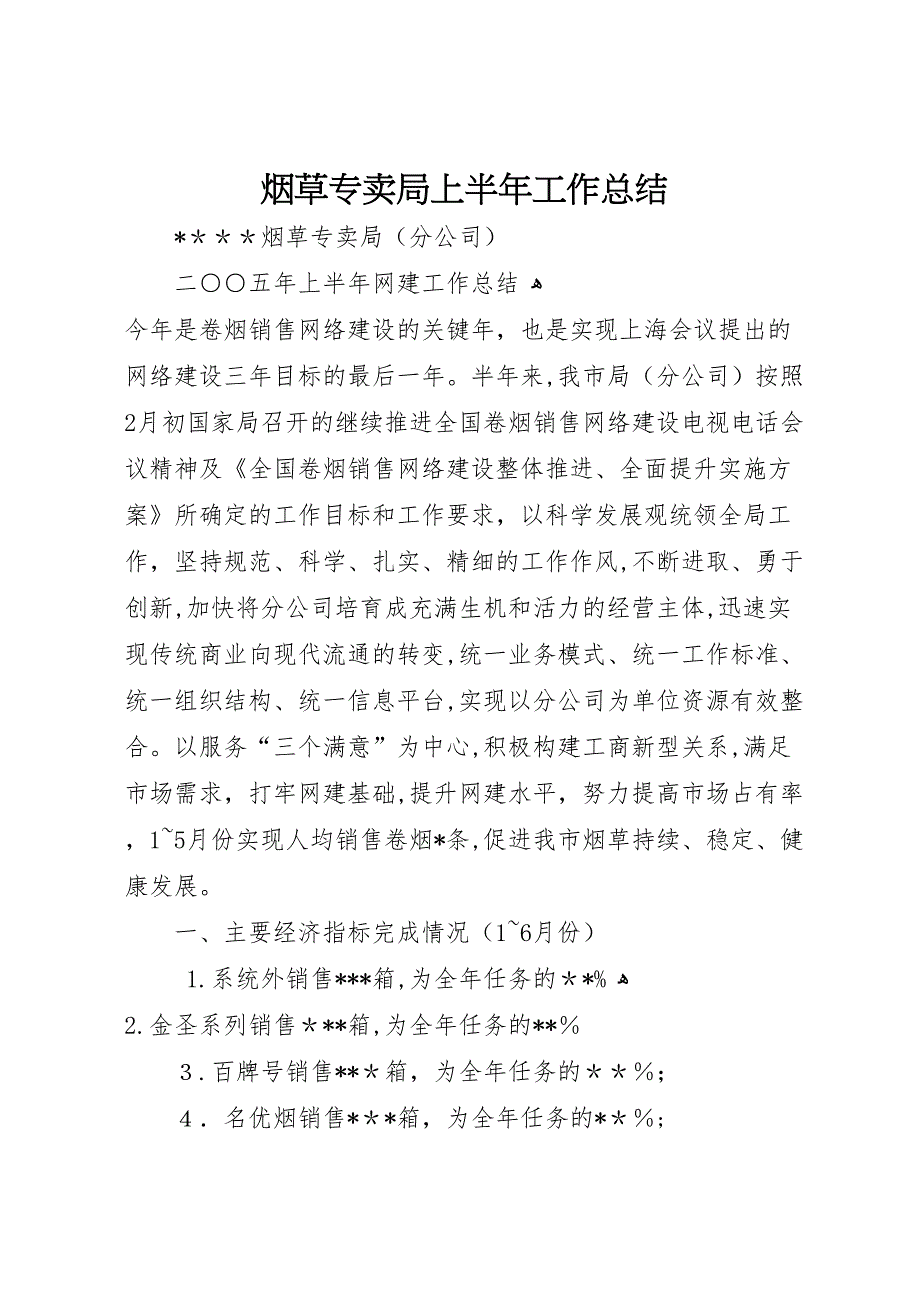 烟草专卖局上半年工作总结
*＊＊＊烟草专卖局（分公司）
二〇〇五年上半年网建工作总结 ﻫ
今年是卷烟销售网络建设的关键年，也是实现上海会议提出的
网络建设三年目标的最后一年。半年来,我市局（分公司）按照
2月初国家局召开的继续推进全国卷烟销售网络建设电视电话会
议精神及《全国卷烟销售网络建设整体推进、全面提升实施方
案》所确定的工作目标和工作要求，以科学发展观统领全局工
作，坚持规范、科学、扎实、精细的工作作风,不断进取、勇于
创新,加快将分公司培育成充满生机和活力的经营主体,迅速实
现传统商业向现代流通的转变,统一业务模式、统一工作标准、
统一组织结构、统一信息平台,实现以分公司为单位资源有效整
合。以服务“三个满意”为中心,积极构建工商新型关系,满足
市场需求，打牢网建基础,提升网建水平，努力提高市场占有率
，1~5月份实现人均销售卷烟*条,促进我市烟草持续、稳定、健
康发展。
一、主要经济指标完成情况（1~6月份）
1.系统外销售***箱,为全年任务的＊*% ﻫ
2.金圣系列销售＊**箱,为全年任务的**％
３.百牌号销售**＊箱，为全年任务的＊＊％；
４．名优烟销售*＊*箱，为全年任务的*＊％；